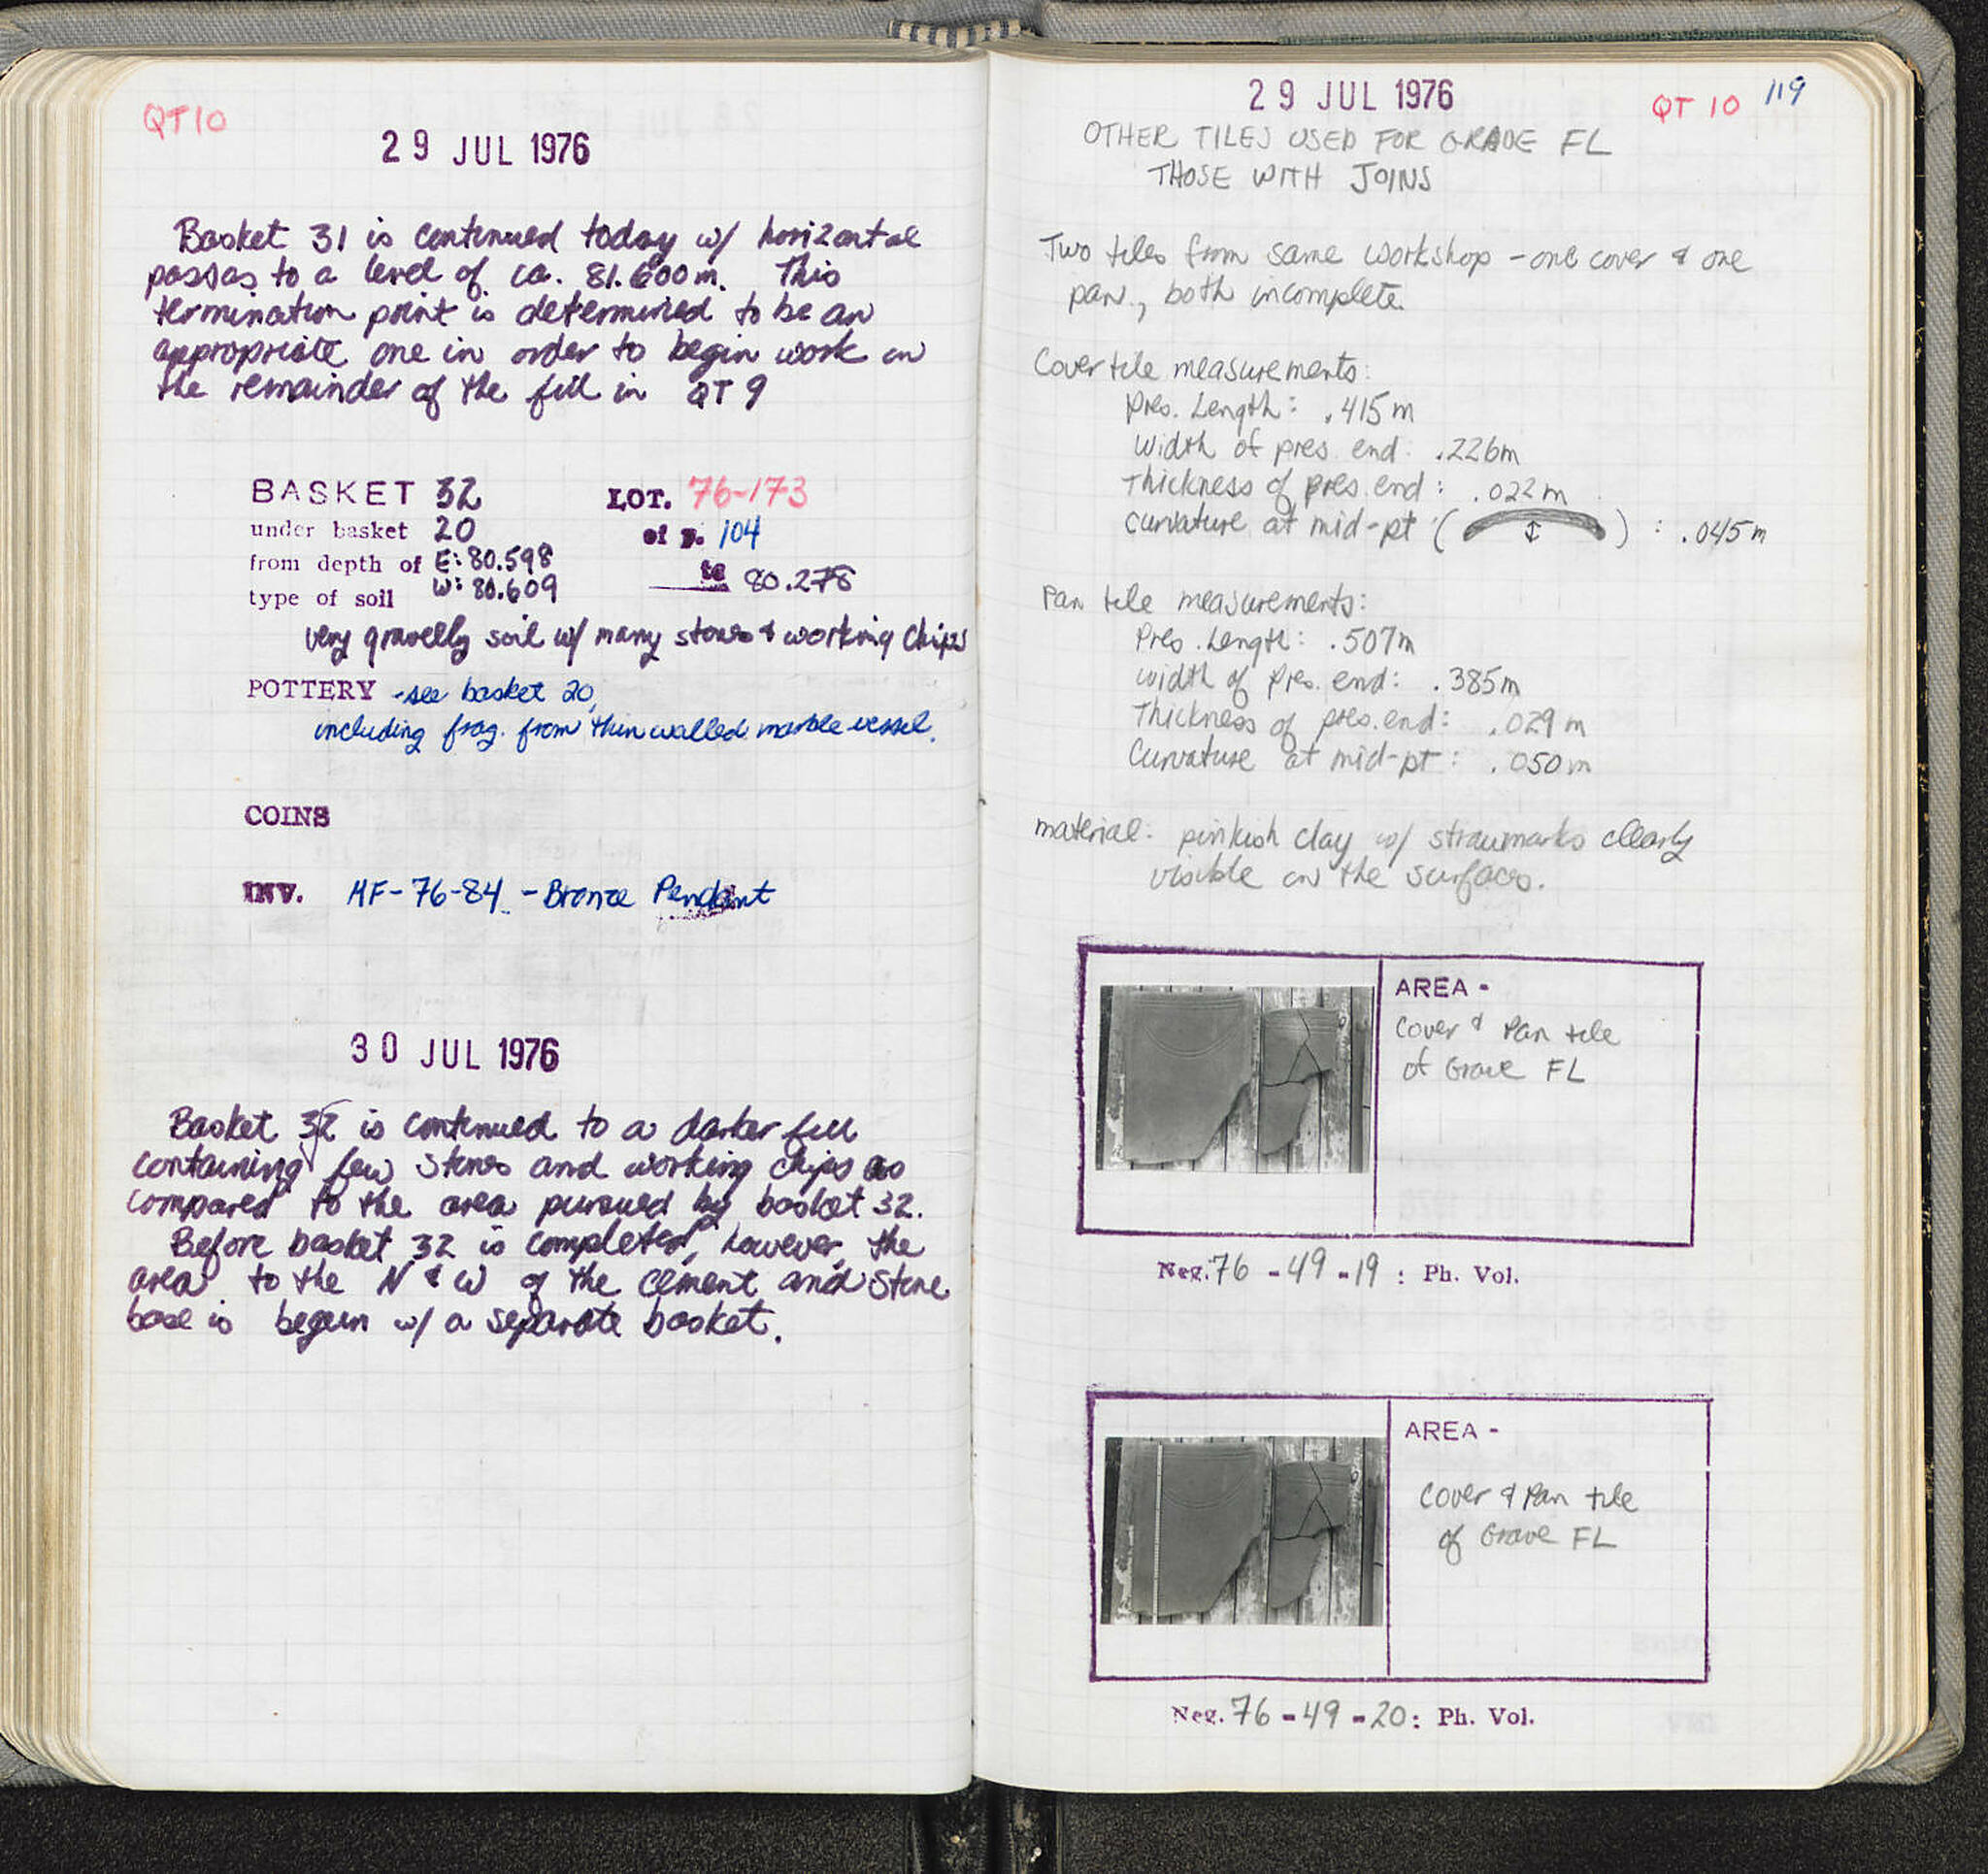 QT 10
29 JUL 1976
Basket 31 is continued today w/ horizontal
passes to a level of ca. 81.600 m. This
termination point is determined to be an
appropriate one in order to begin work on
the remainder of the fill in QT 9
BASKET 32 LOT. 76-173
under basket 20 of p. 104
from depth of E: 80.598 to 80.278
W: 80.609
type of soil
very gravelly soil w/ many stones & working chips
POTTERY - see basket 20,
including frag. from thin walled marble vessel.
COINS
INV. MF-76-84 - Bronze Pendant
30 JUL 1976
Basket 32 is continued to a darker fill
containing few stones and working chips as
compared to the area pursued by basket 32.
Before basket 32 is completed, however, the
area to the N & W of the cement and stone
base is begun w/ a separate basket.
29 JUL 1976
QT 10 119
OTHER TILES USED FOR GRAVE FL
THOSE WITH JOINS
Two tiles from same workshop - one cover & one
pan, both incomplete.
Cover tile measurements:
Pres. Length: .415 m
Width of pres. end: .226m
Thickness of pres. end: .022 m
Curvature at mid-pt ( ) : .045 m
Pan tile measurements:
Pres. Length: .507m
Width of pres. end: .385m
Thickness of pres. end: .029 m
Curvature at mid-pt: .050 m
material: pinkish clay w/ strawmarks clearly
visible on the surfaces.
AREA -
Cover & Pan tile
of Grave FL
Neg. 76 - 49 - 19 : Ph. Vol.
AREA -
Cover & Pan tile
of Grave FL
Neg. 76 - 49 - 20 : Ph. Vol.